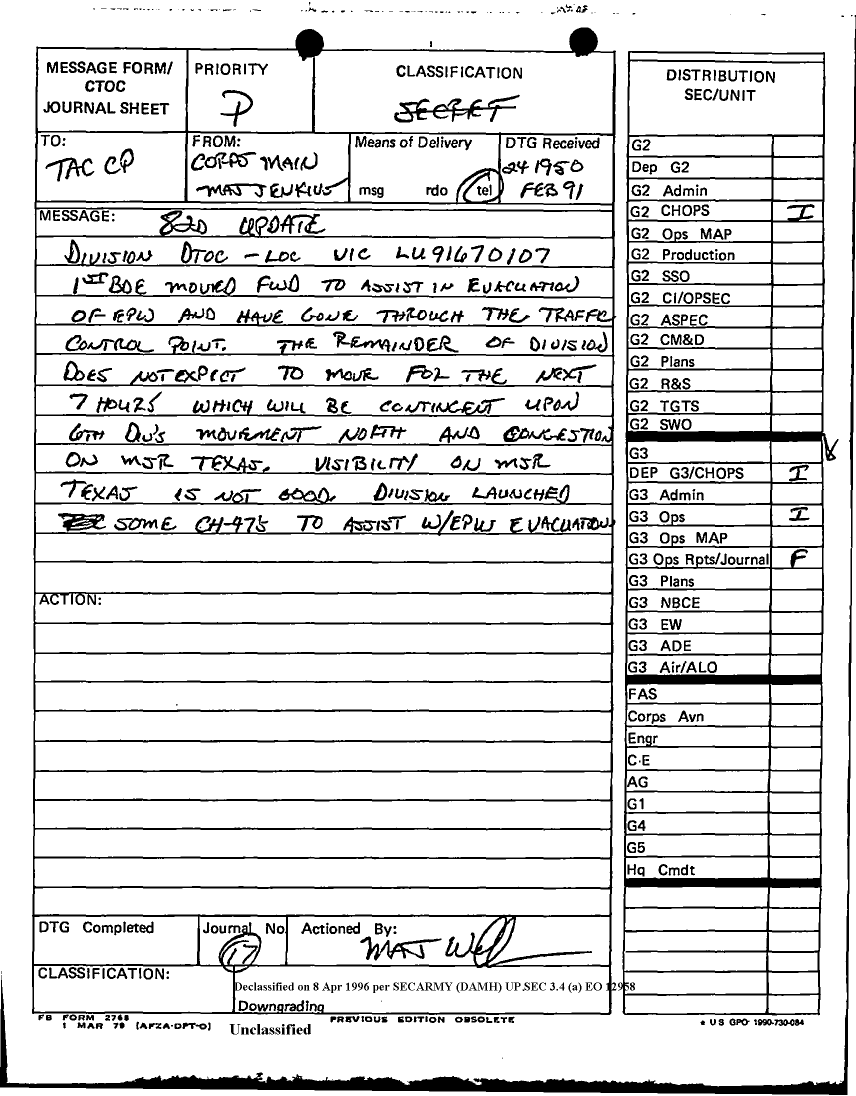 MESSAGE FORM/
CTOC
JOURNAL SHEET
PRIORITY
P
CLASSIFICATION
SECRET
TO:
TAC CP
FROM:
CORPS MAIN
MAJ JENKINS
Means of Delivery
msg rdo tel
DTG Received
241950
FEB 91
MESSAGE:
82D UPDATE
DIVISION DTOC - LOC VIC LU91670107
1ST BDE MOVED FWD TO ASSIST IN EVACUATION
OF EPW AND HAVE GONE THROUGH THE TRAFFIC
CONTROL POINT. THE REMAINDER OF DIVISION
DOES NOT EXPECT TO MOVE FOR THE NEXT
7 HOURS WHICH WILL BE CONTINGENT UPON
6TH DIV'S MOVEMENT NORTH AND CONGESTION
ON MSR TEXAS. VISIBILITY ON MSR
TEXAS IS NOT GOOD. DIVISION LAUNCHED
SOME CH-47'S TO ASSIST W/EPW EVACUATION
ACTION:
DTG Completed
Journal No.
17
Actioned By:
MAJ
CLASSIFICATION:
Declassified on 8 Apr 1996 per SECARMY (DAMH) UP.SEC 3.4 (a) EO 12958
Downgrading
Unclassified
FB FORM 2768
1 MAR 79 (AFZA-DPT-O)
PREVIOUS EDITION OBSOLETE
DISTRIBUTION
SEC/UNIT
G2
Dep G2
G2 Admin
G2 CHOPS I
G2 Ops MAP
G2 Production
G2 SSO
G2 CI/OPSEC
G2 ASPEC
G2 CM&D
G2 Plans
G2 R&S
G2 TGTS
G2 SWO
G3
DEP G3/CHOPS I
G3 Admin
G3 Ops I
G3 Ops MAP
G3 Ops Rpts/Journal F
G3 Plans
G3 NBCE
G3 EW
G3 ADE
G3 Air/ALO
FAS
Corps Avn
Engr
C-E
AG
G1
G4
G5
Hq Cmdt
* US GPO 1990-730-084